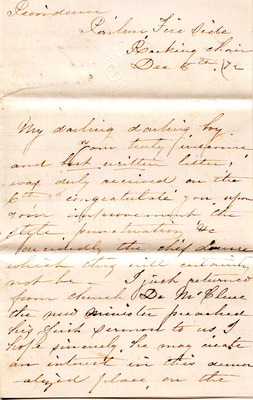 Providence
Parlor Fire Side
Rocking chair
Dec 8th /72
My darling darling boy.
Your truly welcome
and written letter,
was duly received on the
6th I congratulate you upon
your improvement the
style, punctuation, &c
which they will certainly
not be. I just returned
from church Dr McClure
the new minister preached
his first sermon to us, I
hope sincerely he may create
an interest in this demor
alized place, on the